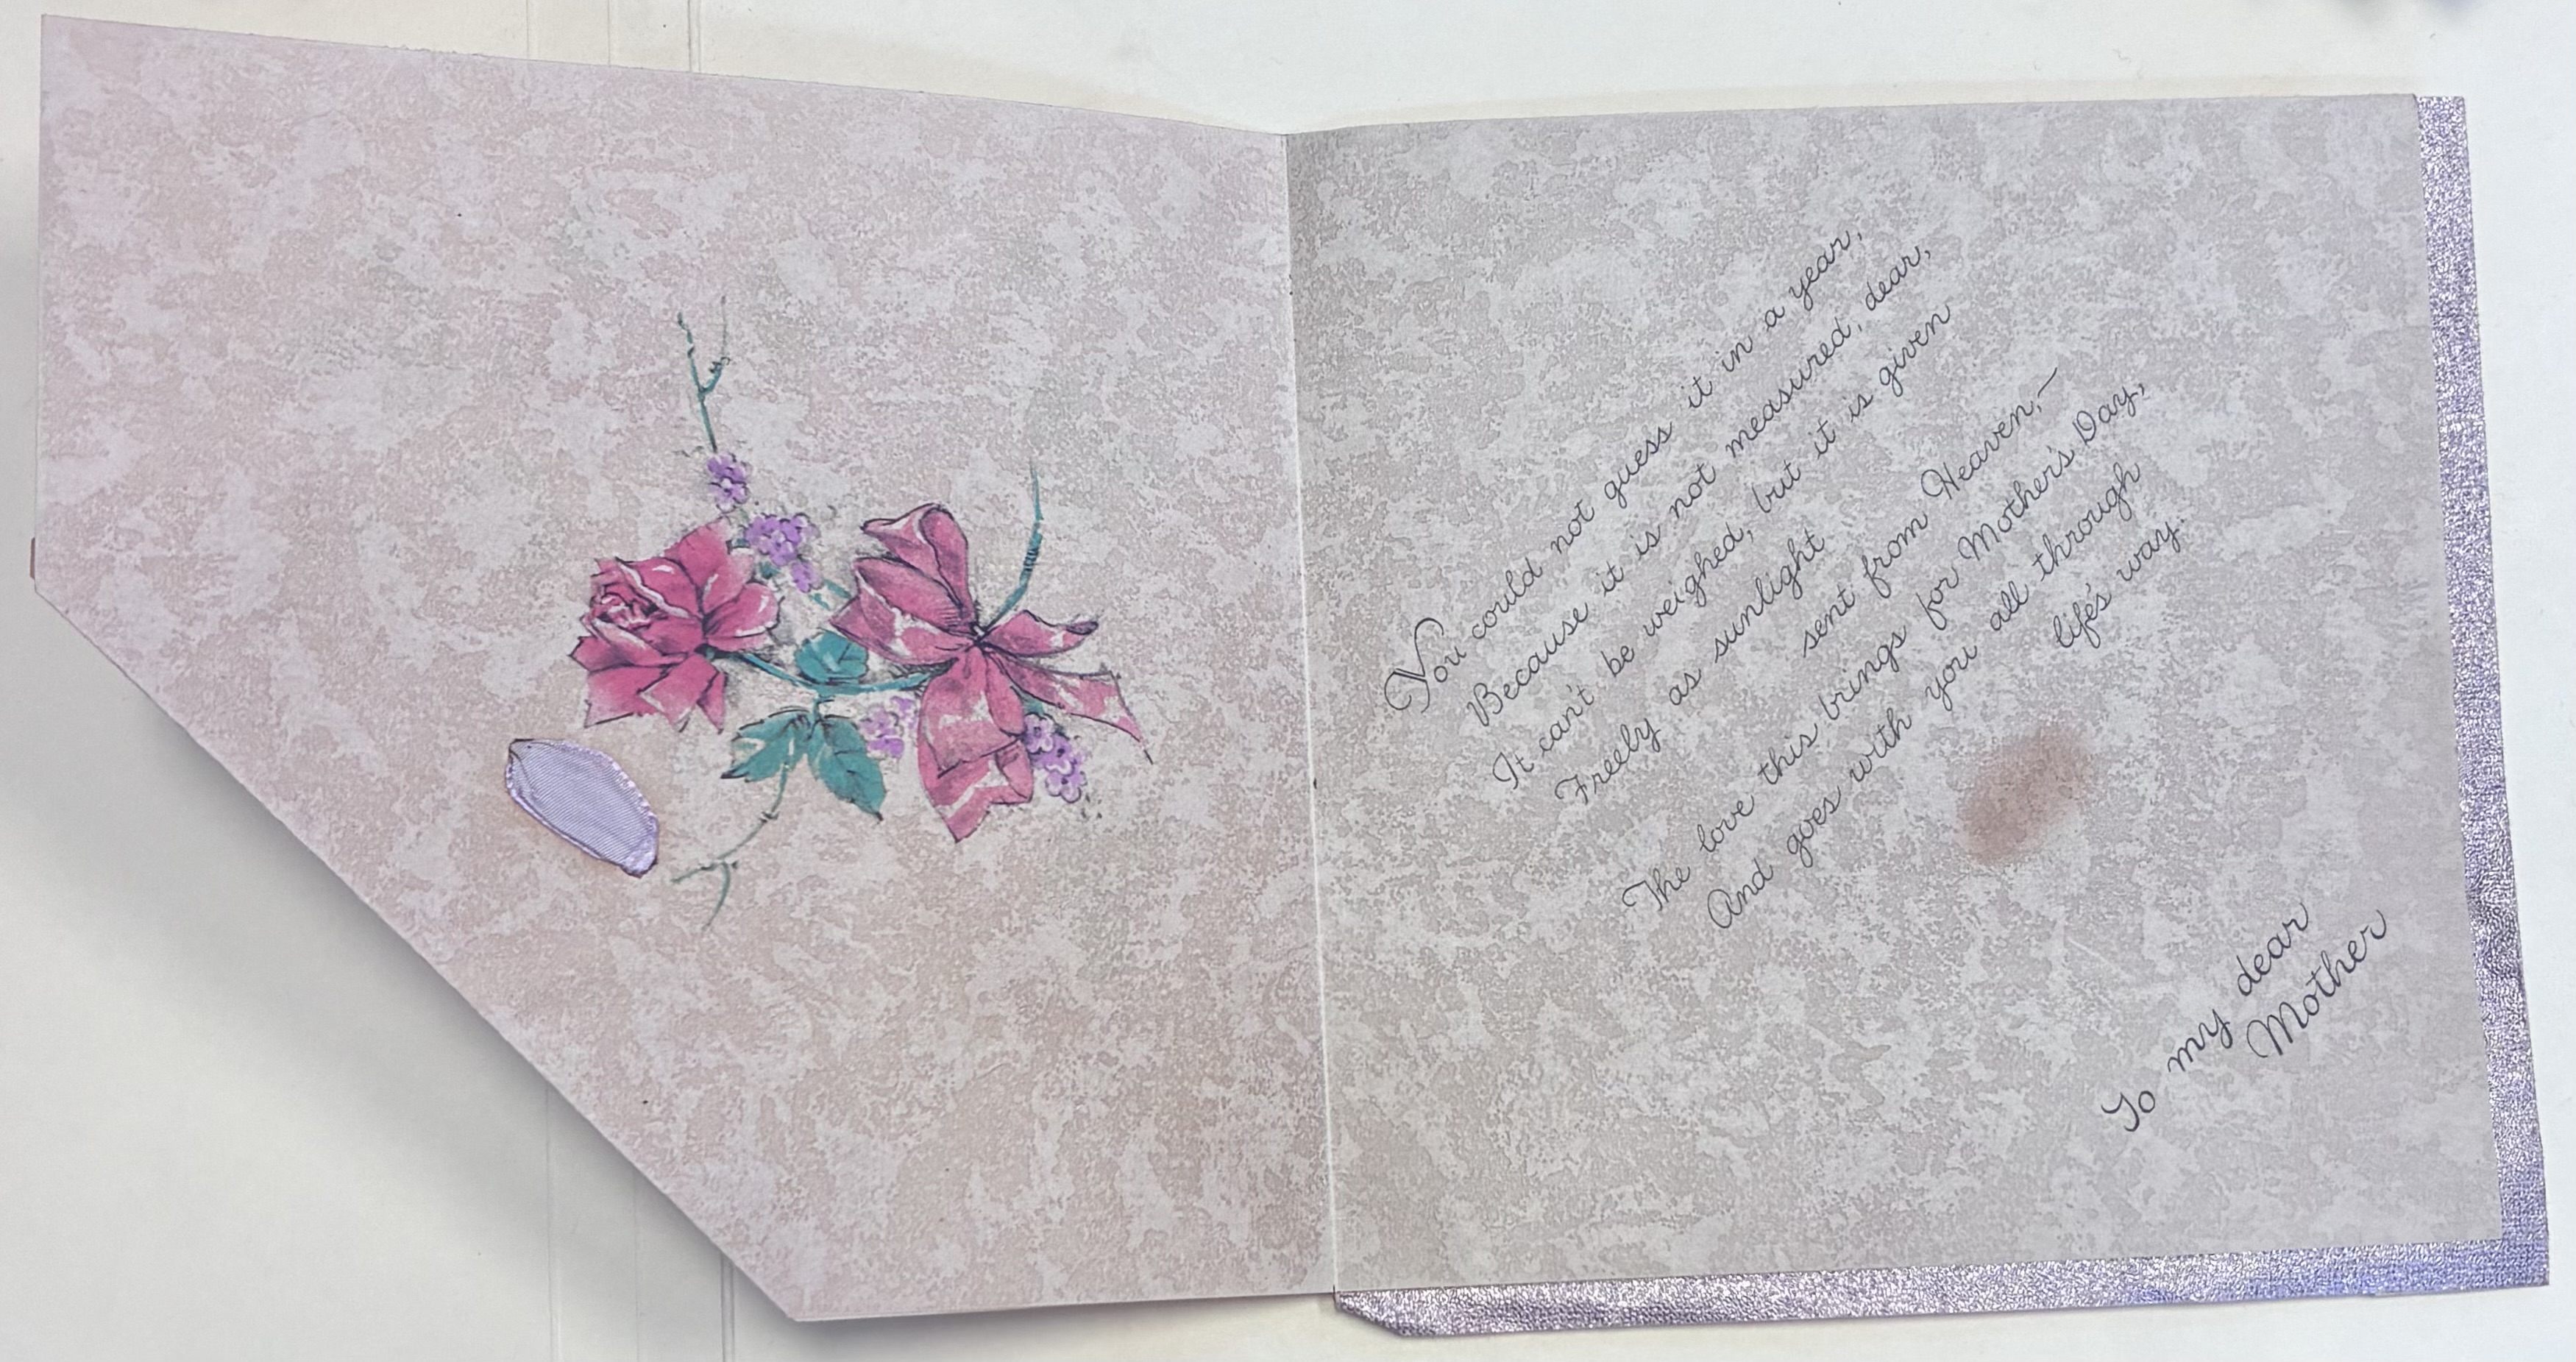 You could not guess it in a year,
Because it is not measured, dear,
It can't be weighed, but it is given
Freely as sunlight
sent from Heaven,—
The love this brings for Mother's Day,
And goes with you all through
life's way.
To my dear
Mother